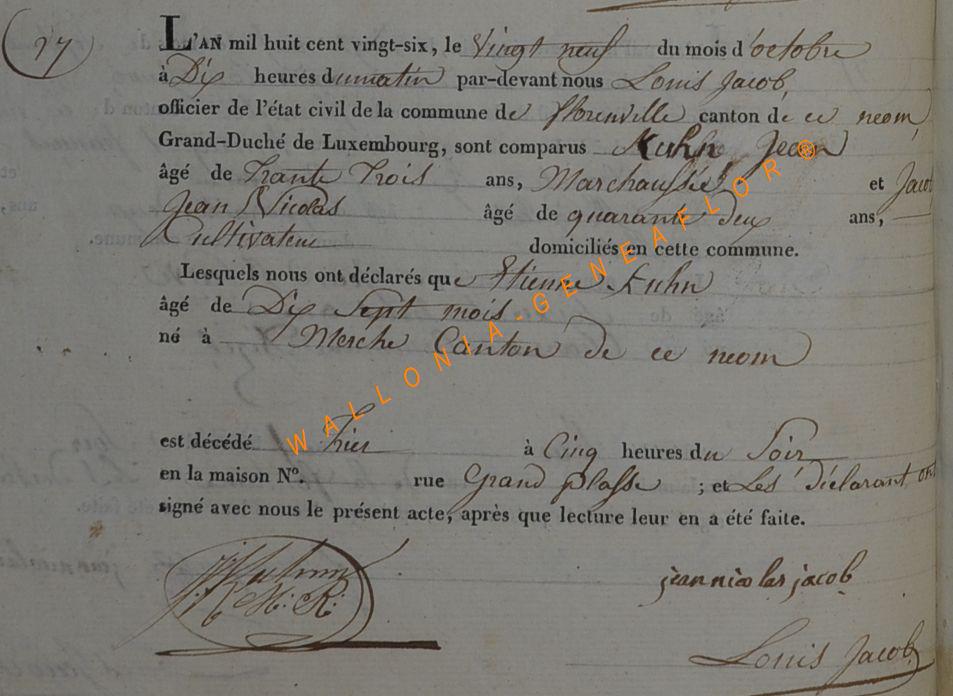 27
L'AN mil huit cent vingt-six, le Vingt neuf du mois d'octobre
à Dix heures du matin par-devant nous Louis Jacob,
officier de l'état civil de la commune de florenville canton de ce neom
Grand-Duché de Luxembourg, sont comparus Kuhn Jean
âgé de Trante Trois ans, Marchaussée et Jacob
Jean Nicolas âgé de quarante deux ans,
Cultivateur domiciliés en cette commune.
Lesquels nous ont déclarés que Etienne Kuhn
âgé de Dix Sept mois
né à Mersche Canton de ce neom
est décédé hier à Cinq heures du Soir
en la maison N°. rue Grand plasse ; et Les déclarant ont
signé avec nous le présent acte, après que lecture leur en a été faite.
jean nicolas jacob
Louis Jacob
WALLONIA-GENEAFLOR®